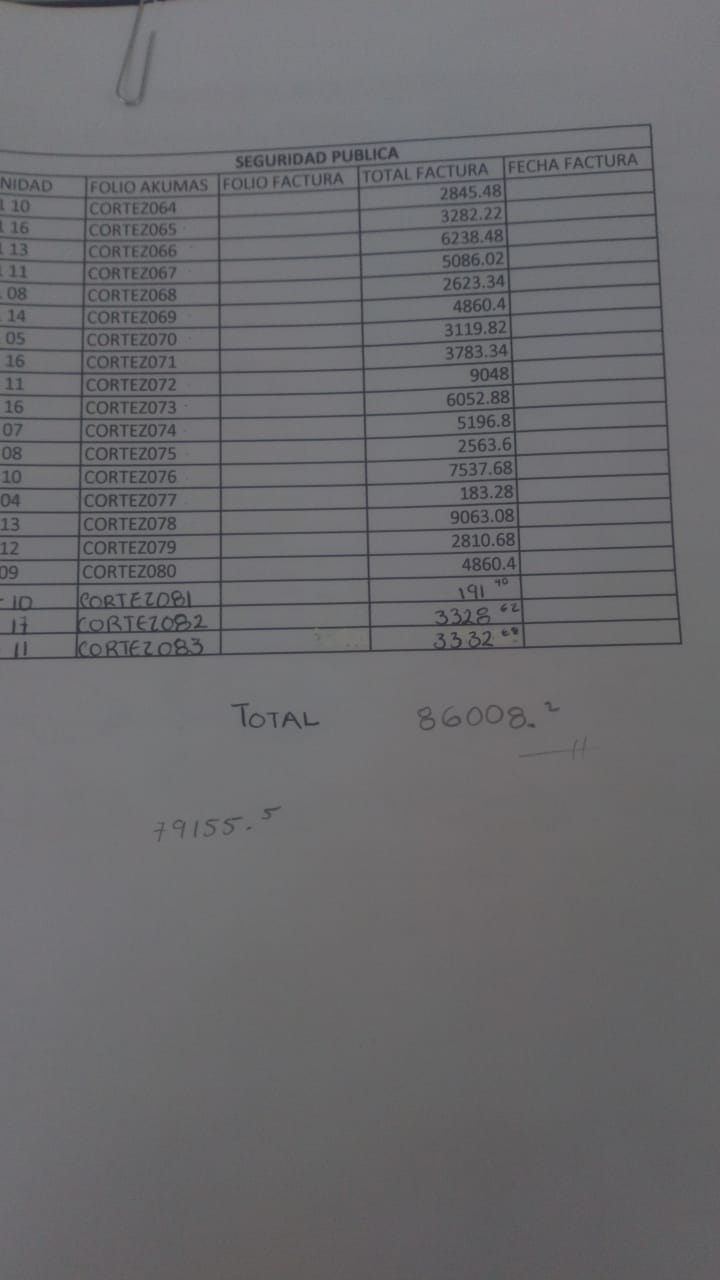 SEGURIDAD PUBLICA
NIDAD FOLIO AKUMAS FOLIO FACTURA TOTAL FACTURA FECHA FACTURA
1 10 CORTEZ064 2845.48
1 16 CORTEZ065 3282.22
1 13 CORTEZ066 6238.48
11 CORTEZ067 5086.02
08 CORTEZ068 2623.34
14 CORTEZ069 4860.4
05 CORTEZ070 3119.82
16 CORTEZ071 3783.34
11 CORTEZ072 9048
16 CORTEZ073 6052.88
07 CORTEZ074 5196.8
08 CORTEZ075 2563.6
10 CORTEZ076 7537.68
04 CORTEZ077 183.28
13 CORTEZ078 9063.08
12 CORTEZ079 2810.68
09 CORTEZ080 4860.4
- 10 CORTEZ081 191 40
17 CORTEZ082 3328 62
11 CORTEZ083 3332
TOTAL 86008.2
79155.5